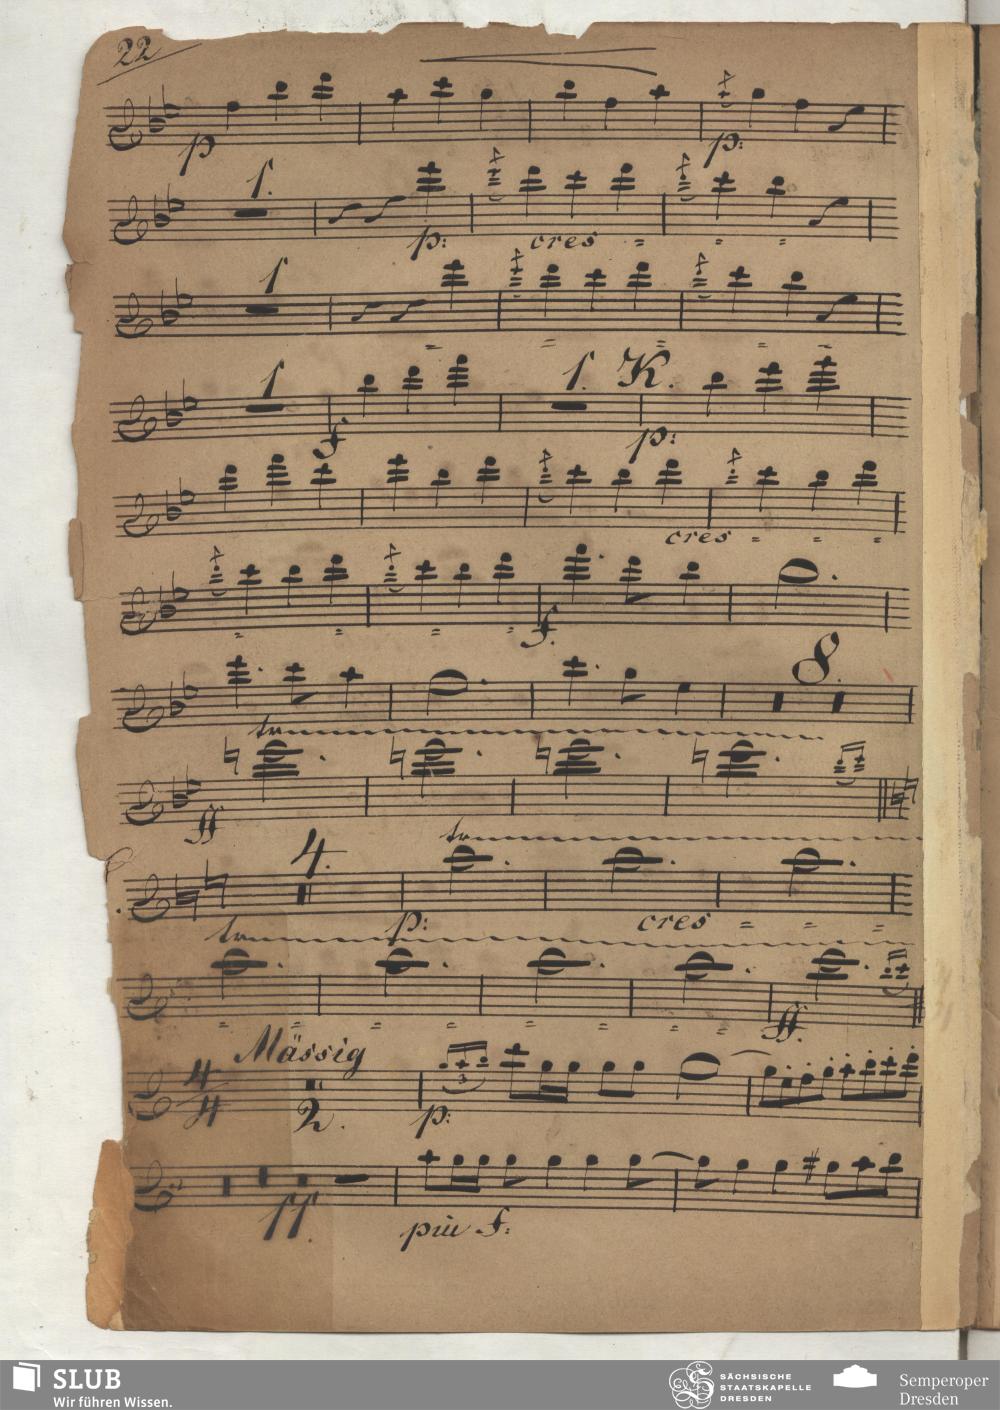 22
p p:
1.
p: cres = = =
1
= = = =
1 1. K.
f p:
cres = = =
= = = = f.
8.
tr
ff
tr
4.
p: cres = = =
tr
= = = = = = = = ff.
Mässig
4 4 2. p: 3
11. più f:
SLUB
Wir führen Wissen.
SÄCHSISCHE
STAATSKAPELLE
DRESDEN
Semperoper
Dresden